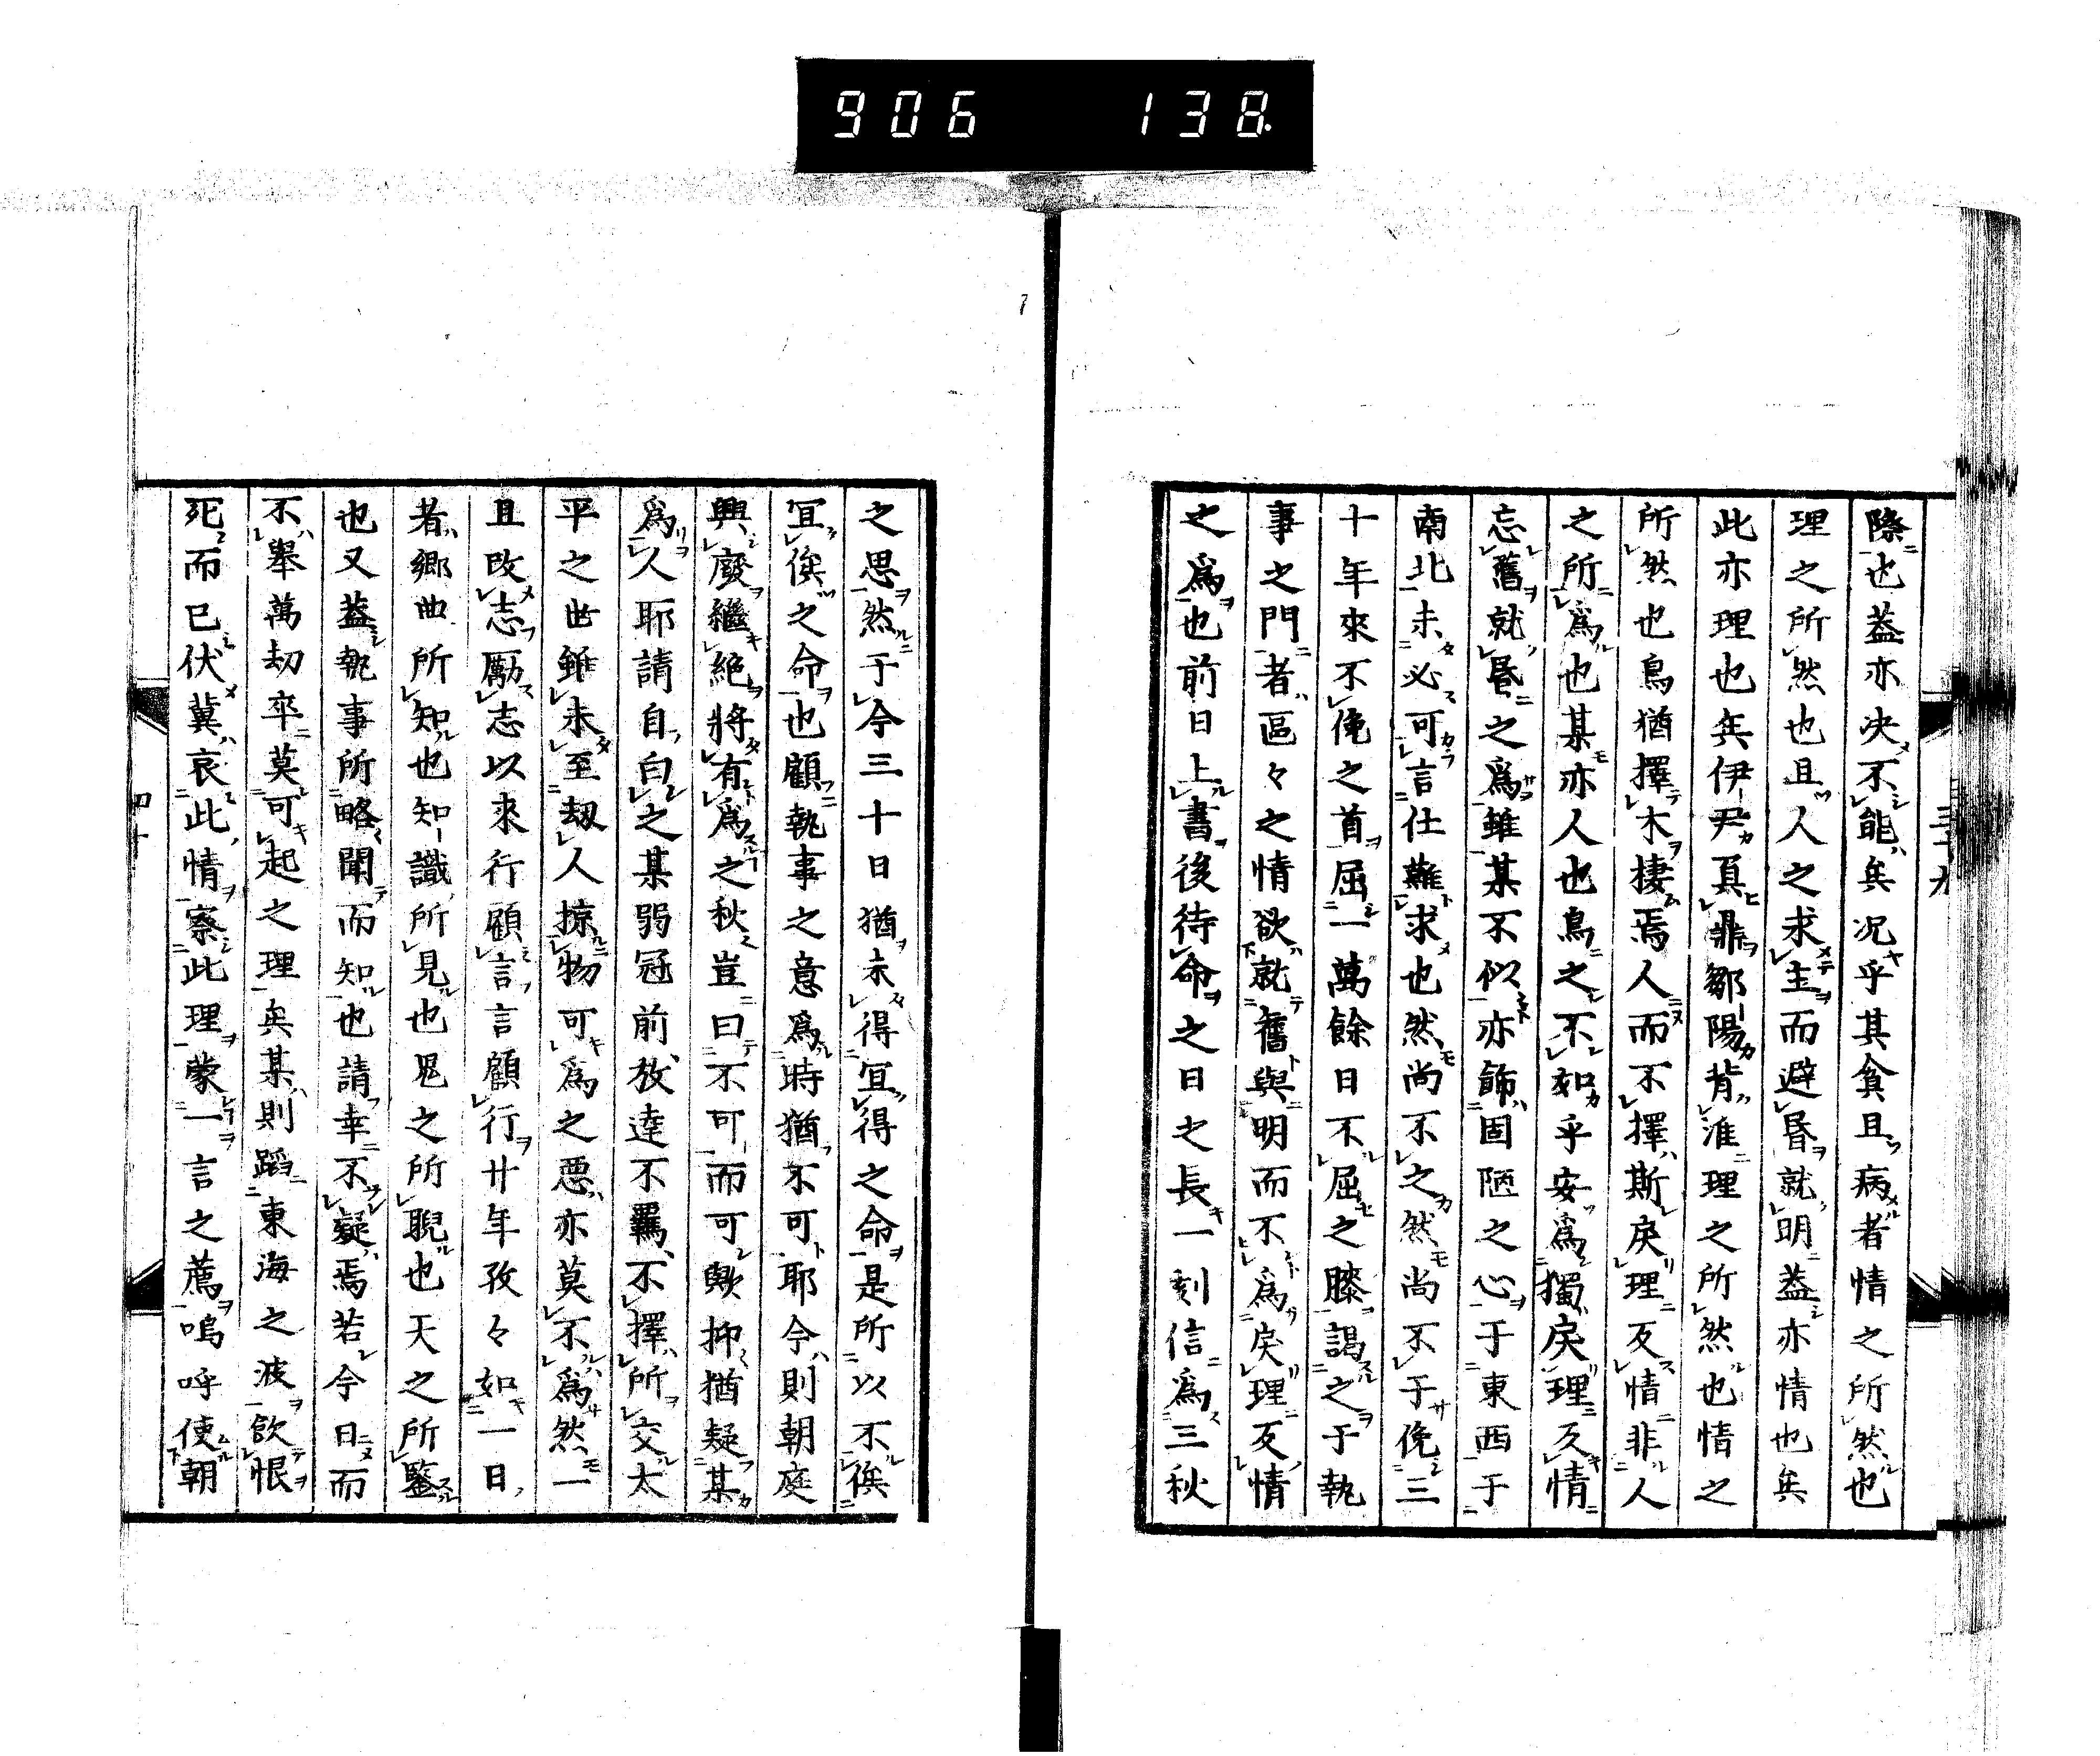 906 138
際也葢亦决不能矣况乎其貧且病者情之所然也
理之所然也且人之求主而避昬就明葢亦情也矣
此亦理也矣伊尹負鼎鄒陽背淮理之所然也情之
所然也鳥猶擇木棲焉人而不擇斯戾理反情非人
之所爲也某亦人也鳥之不如乎安爲獨戾理反情
忘舊就昬之爲雖某不似亦飾固陋之心于東西于
南北未必可言仕難求也然尚不之然尚不于俛三
十年來不俛之首屈一萬餘日不屈之膝謁之于執
事之門者區々之情欲就舊與明而不爲戾理反情
之爲也前日上書後待命之日之長一刻信爲三秋
之思然于今三十日猶未得宜得之命是所以不俟
宜俟之命也顧執事之意爲時猶不可耶今則朝庭
興廢繼絕將有爲之秋豈曰不可而可歟抑猶疑某
爲人耶請自白之某弱冠前放達不羈不擇所交太
平之世雖未至刼人掠物可爲之悪亦莫不爲然一
且改志勵志以來行顧言言顧行廿年孜々如一日
者鄉曲所知也知識所見也鬼之所睨也天之所鑒
也又葢執事所略聞而知也請幸不疑焉若今日而
不舉萬劫卒莫可起之理矣某則蹈東海之波飮恨
死而已伏冀哀此情察此理蒙一言之薦嗚呼使朝